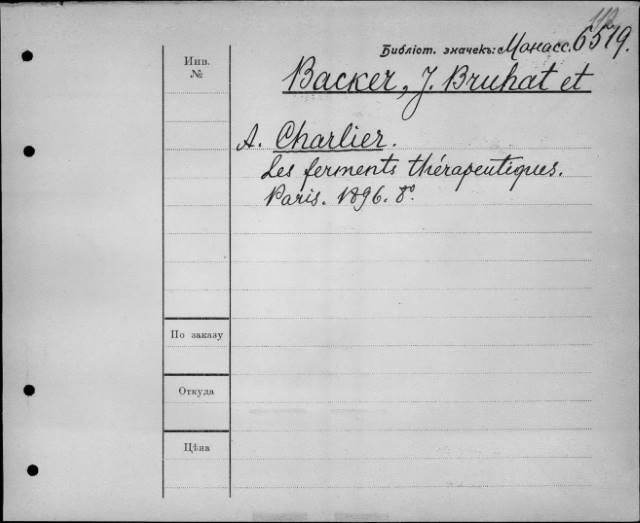 Библіот. значекъ: Монасс. 6579.
Инв.
№
Backer, J. Bruhat et
A. Charlier.
Les ferments thérapeutiques.
Paris. 1896. 8°.
По заказу
Откуда
Цѣна